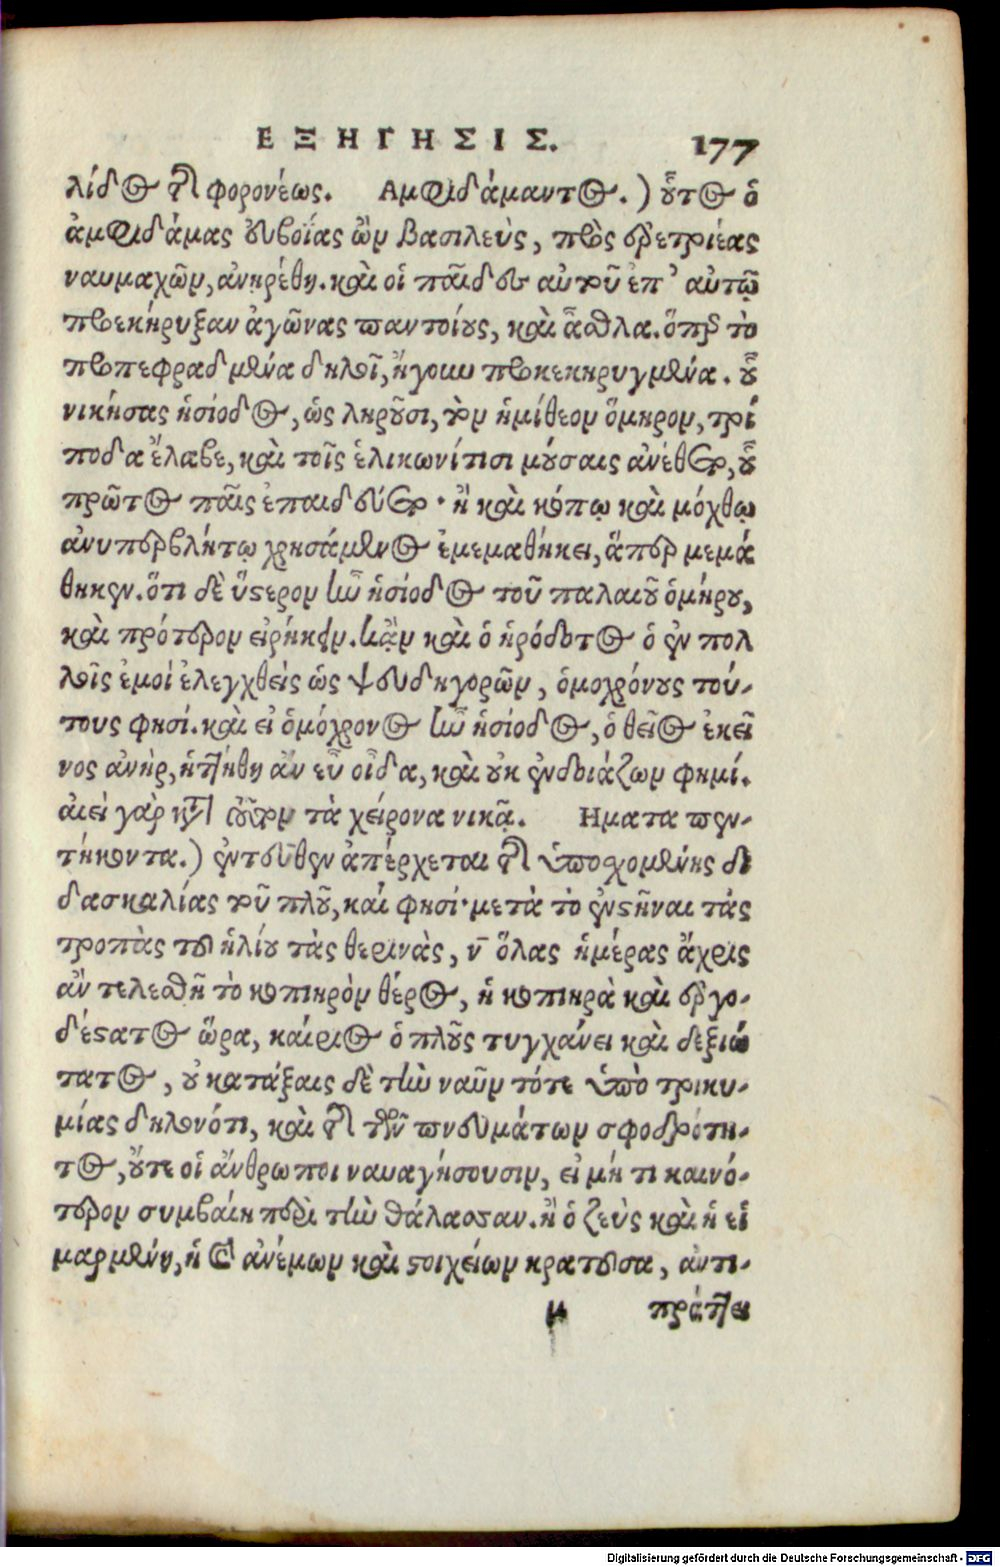 ΕΞΗΓΗΣΙΣ. 177
λίδος τῆς φορονέως. Αμφιδάμαντος.) οὗτος ὁ
ἀμφιδάμας εὐβοίας ὢν βασιλεὺς, πρὸς ἐρετριέας
ναυμαχῶν, ἀνῃρέθη. καὶ οἱ παῖδες αὐτοῦ ἐπ’ αὐτῷ
προεκήρυξαν ἀγῶνας παντοίους, καὶ ἆθλα. ὅπερ τὸ
προπεφραδμένα δηλοῖ, ἤγουν προκεκηρυγμένα. οὗ
νικήσας ἡσίοδος, ὡς ληροῦσι, τὸν ἡμίθεον ὅμηρον, τρί
ποδα ἔλαβε, καὶ τοῖς ἑλικωνίτισι μούσαις ἀνέθετο, οὗ
πρῶτος παῖς ἐπαιδεύετο· ἢ καὶ κόπῳ καὶ μόχθῳ
ἀνυπερβλήτῳ χρησάμενος ἐμεμαθήκει, ἅπερ μεμά
θηκεν. ὅτι δὲ ὕστερον ἦν ἡσίοδος τοῦ παλαιοῦ ὁμήρου,
καὶ πρότερον εἰρήκειν. κἂν καὶ ὁ ἡρόδοτος ὁ ἐν πολ
λοῖς ἐμοὶ ἐλεγχθεὶς ὡς ψευδηγορῶν, ὁμοχρόνους τού-
τους φησί. καὶ εἰ ὁμόχρονος ἦν ἡσίοδος, ὁ θεῖος ἐκεῖ
νος ἀνὴρ, ἡττήθη ἂν εὖ οἶδα, καὶ οὐκ ἐνδοιάζων φημί.
αἰεὶ γὰρ κατ’ τὰ χείρονα νικᾷ. Ηματα πεν-
τήκοντα.) ἐντεῦθεν ἀπέρχεται τῆς ὑποσχομένης δι
δασκαλίας τοῦ πλοῦ, καί φησι· μετὰ τὸ ἐνστῆναι τὰς
τροπὰς τοῦ ἡλίου τὰς θερινὰς, ν̄ ὅλας ἡμέρας ἄχρις
ἂν τελεσθῇ τὸ κοπιηρὸν θέρος, ἡ κοπιηρὰ καὶ ἐργο-
δέστατος ὥρα, καίριος ὁ πλοῦς τυγχάνει καὶ δεξιώ
τατος, οὐ κατάξαις δὲ τὴν ναῦν τότε ὑπὸ τρικυ-
μίας δηλονότι, καὶ τῆς τῶν πνευμάτων σφοδρότη-
τος, οὔτε οἱ ἄνθρωποι ναυαγήσουσιν, εἰ μή τι καινό-
τερον συμβαίη περὶ τὴν θάλασσαν. ἢ ὁ ζεὺς καὶ ἡ εἱ
μαρμένη, ἡ τῶν ἀνέμων καὶ στοιχείων κρατοῦσα, ἀντι-
μ πράττει
Digitalisierung gefördert durch die Deutsche Forschungsgemeinschaft - DFG